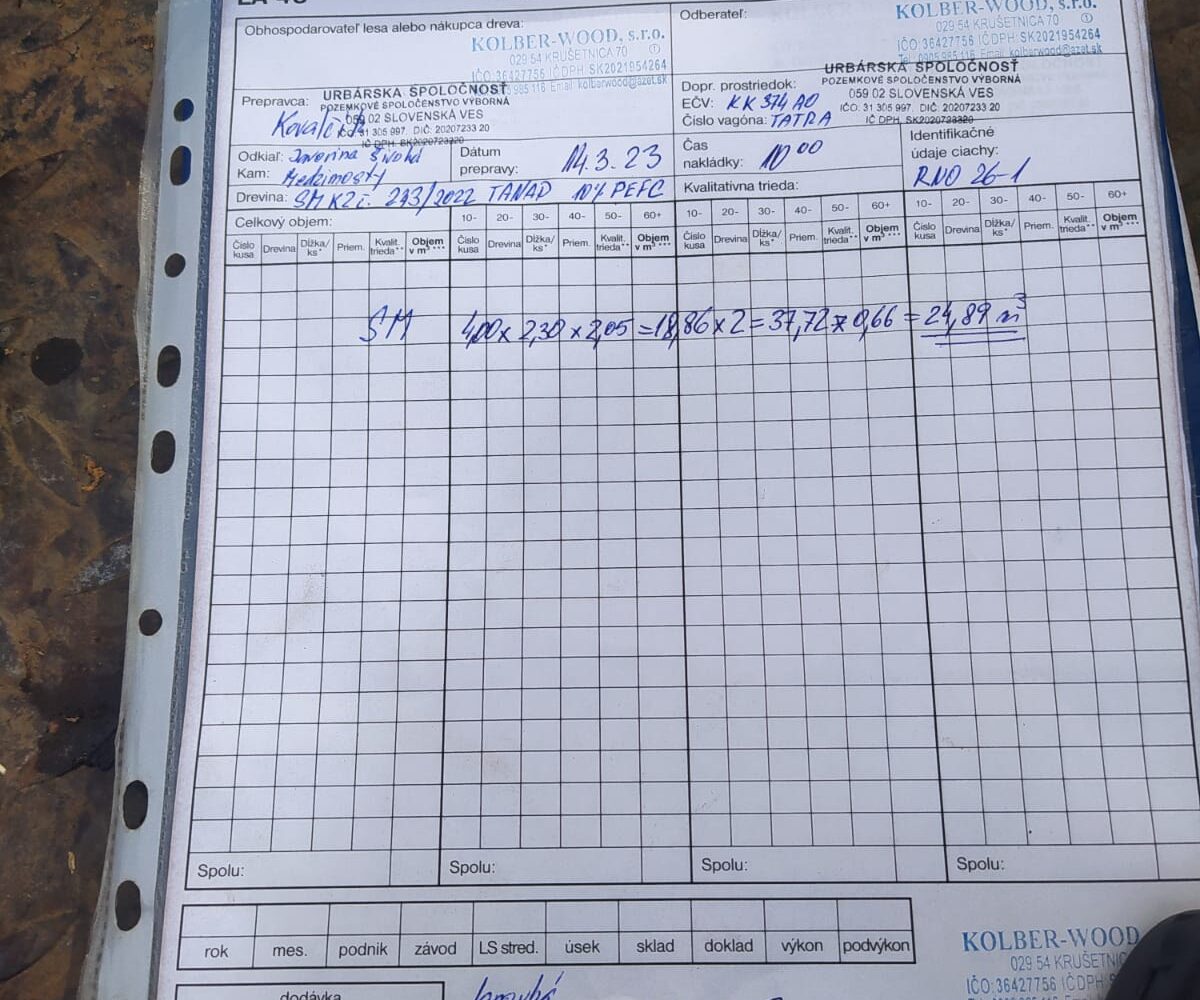 Obhospodarovateľ lesa alebo nákupca dreva:
KOLBER-WOOD, s.r.o.
029 54 KRUŠETNICA 70 ①
IČO:36427756 IČ DPH: SK2021954264
985 116 Email: kolberwood@azet.sk
Odberateľ:
KOLBER-WOOD, s.r.o.
029 54 KRUŠETNICA 70 ①
IČO:36427756 IČDPH: SK2021954264
Tel.: 0905 985 116 Email: kolberwood@azet.sk
Prepravca:
URBÁRSKA SPOLOČNOSŤ
POZEMKOVÉ SPOLOČENSTVO VÝBORNÁ
059 02 SLOVENSKÁ VES
31 305 997 DIČ: 20207233 20
IČ DPH: SK2020723320
Dopr. prostriedok:
URBÁRSKA SPOLOČNOSŤ
POZEMKOVÉ SPOLOČENSTVO VÝBORNÁ
059 02 SLOVENSKÁ VES
IČO: 31 305 997 DIČ: 20207233 20
IČ DPH: SK2020723320
EČV: KK 374 AO
Číslo vagóna: TATRA
Odkiaľ: Javorina
Kam: Medzimosty
Dátum prepravy: 14.3.23
Čas nakládky: 10 00
Identifikačné údaje ciachy:
RNO 26-1
Drevina: SM KZ č. 293/2022 TANAP 10% PEFC
Kvalitatívna trieda:
Celkový objem: 10- 20- 30- 40- 50- 60+ 10- 20- 30- 40- 50- 60+ 10- 20- 30- 40- 50- 60+
Číslo kusa Drevina Dĺžka/ks* Priem. Kvalit. trieda** Objem v m³*** Číslo kusa Drevina Dĺžka/ks* Priem. Kvalit. trieda** Objem v m³*** Číslo kusa Drevina Dĺžka/ks* Priem. Kvalit. trieda** Objem v m³*** Číslo kusa Drevina Dĺžka/ks* Priem. Kvalit. trieda** Objem v m³***
SM 4,00 x 2,30 x 2,05 = 18,86 x 2 = 37,72 x 0,66 = 24,89 m³
Spolu: Spolu: Spolu: Spolu:
rok mes. podnik závod LS stred. úsek sklad doklad výkon podvýkon
KOLBER-WOOD
029 54 KRUŠETNIC
IČO:36427756 IČDPH
dodávka